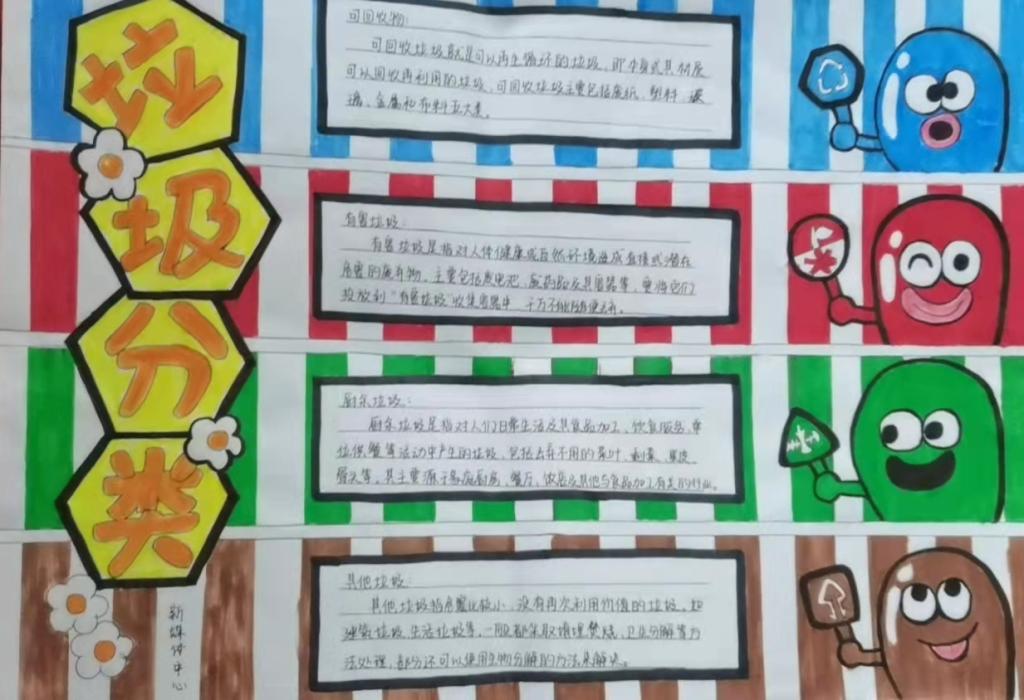 垃圾分类
可回收物:
可回收垃圾就是可以再生循环的垃圾。即本身或其材质
可以回收再利用的垃圾,可回收垃圾主要包括废纸,塑料,玻
璃,金属和布料五大类。
有害垃圾:
有害垃圾是指对人体健康或自然环境造成直接或潜在
危害的废弃物。主要包括废电池,废药品及其容器等,要将它们
投放到“有害垃圾”收集容器中,千万不能随便丢弃。
厨余垃圾:
厨余垃圾是指对人们日常生活及其食品加工、饮食服务、单
位供餐等活动中产生的垃圾,包括丢弃不用的菜叶、剩菜、果皮、
等,其主要源于家庭厨房,餐厅,饭店及其他与食品加工有关的行业。
其他垃圾:
其他垃圾指危害比较小,没有再次利用价值的垃圾,如
垃圾,生活垃圾等,一般都采取填埋、焚烧、卫生分解等方
法处理,部分还可以使用生物分解的方法来解决。
新媒体中心